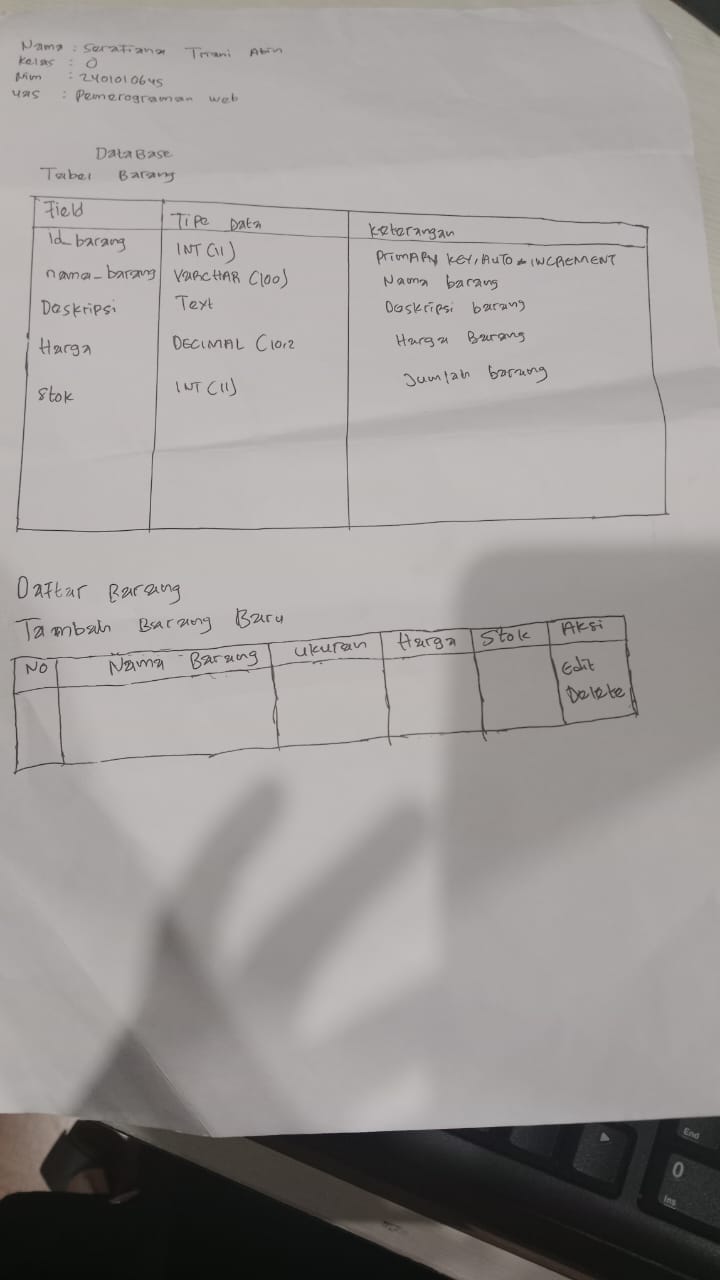 Nama : Serafiana Trrani Abin
Kelas : O
Nim : 2401010645
uas : Pemerograman web
DataBase
Tabel Barang
Field Tipe Data Keterangan
Id_barang INT (11) PRIMARY KEY, AUTO - INCREMENT
nama_barang VARCHAR (100) Nama barang
Deskripsi Text Deskripsi barang
Harga DECIMAL (10,2 Harga Barang
Stok INT (11) Jumlah barang
Daftar Barang
Tambah Barang Baru
No Nama Barang ukuran Harga Stok Aksi
Edit
Delete
End
0
Ins